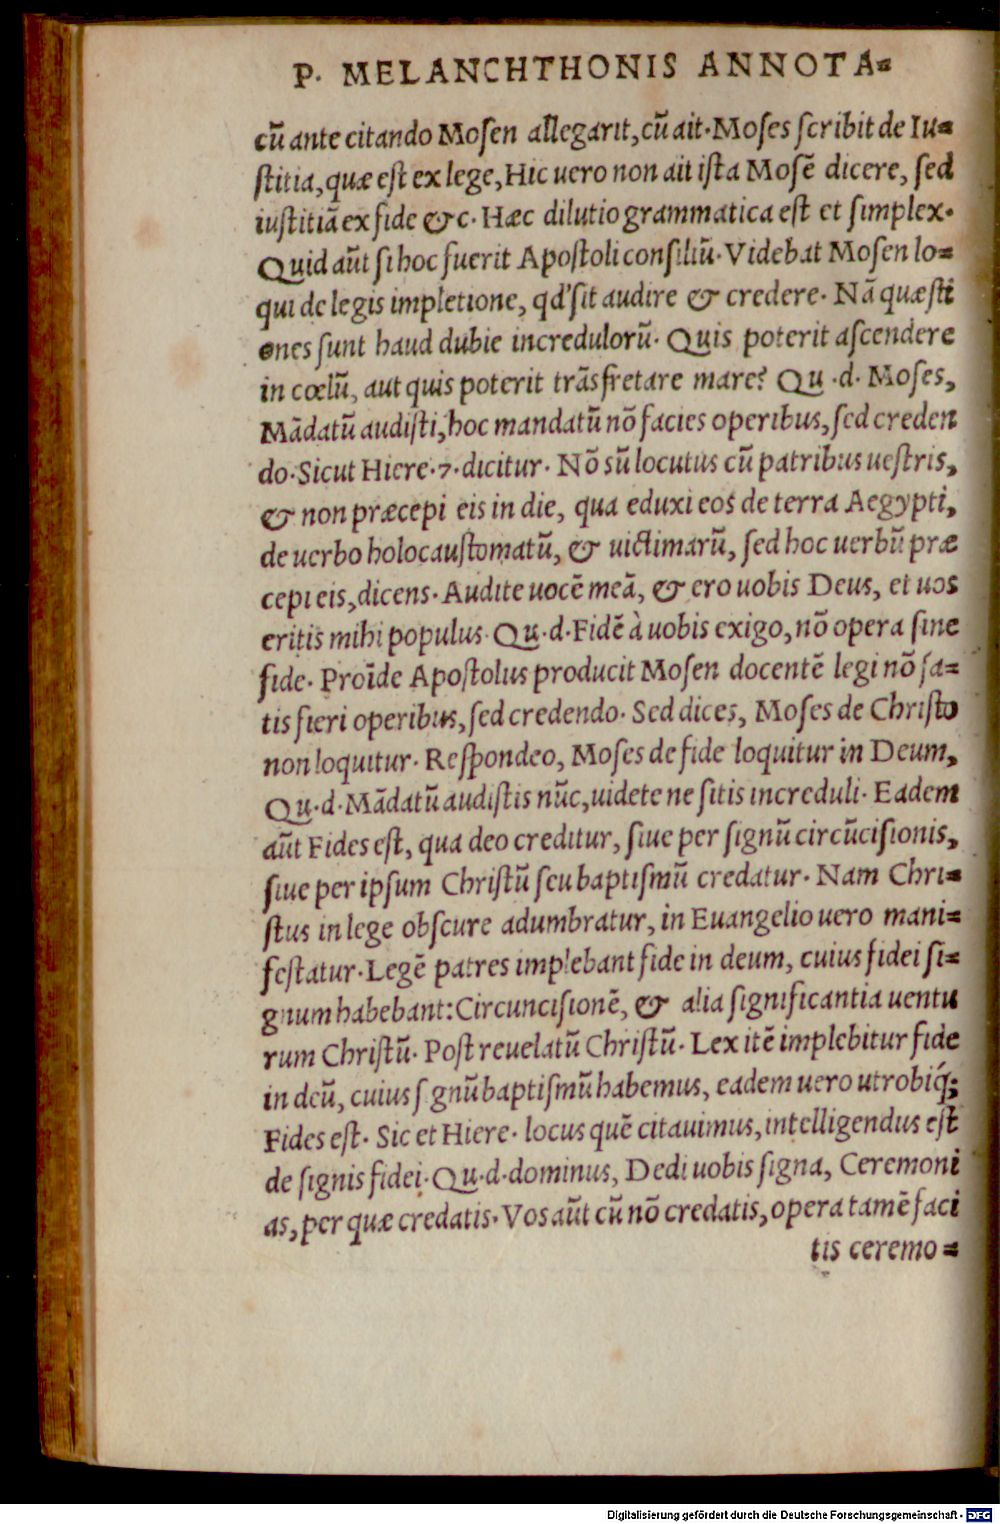 P. MELANCHTHONIS ANNOTA-
cũ ante citando Moſen allegarit, cũ ait. Moſes ſcribit de Iu-
ſtitia, quæ eſt ex lege, Hic uero non ait iſta Moſẽ dicere, ſed
iuſtitiã ex fide &c. Hæc dilutio grammatica eſt et ſimplex.
Quid aũt ſi hoc fuerit Apoſtoli conſiliũ. Videbat Moſen lo-
qui de legis impletione, qd' ſit audire & credere. Nã quæſti
ones ſunt haud dubie incredulorũ. Quis poterit aſcendere
in cœlũ, aut quis poterit trãsfretare mare? Qu .d. Moſes,
Mãdatũ audiſti, hoc mandatũ nõ facies operibus, ſed creden
do. Sicut Hiere. 7. dicitur. Nõ ſũ locutus cũ patribus ueſtris,
& non præcepi eis in die, qua eduxi eos de terra Aegypti,
de uerbo holocauſtomatũ, & uictimarũ, ſed hoc uerbũ præ
cepi eis, dicens. Audite uocẽ meã, & ero uobis Deus, et uos
eritis mihi populus. Qu.d. Fidẽ à uobis exigo, nõ opera ſine
fide. Proĩde Apoſtolus producit Moſen docentẽ legi nõ ſa-
tis fieri operibus, ſed credendo. Sed dices, Moſes de Chriſto
non loquitur. Reſpondeo, Moſes de fide loquitur in Deum,
Qu.d. Mãdatũ audiſtis nũc, uidete ne ſitis increduli. Eadem
aũt Fides eſt, qua deo creditur, ſiue per ſignũ circũciſionis,
ſiue per ipſum Chriſtũ ſeu baptiſmũ credatur. Nam Chri-
ſtus in lege obſcure adumbratur, in Euangelio uero mani-
feſtatur. Legẽ patres implebant fide in deum, cuius fidei ſi-
gnum habebant: Circunciſionẽ, & alia ſignificantia uentu
rum Chriſtũ. Poſt reuelatũ Chriſtũ. Lex itẽ implebitur fide
in deũ, cuius ſ gnũ baptiſmũ habemus, eadem uero utrobiq́;
Fides eſt. Sic et Hiere. locus quẽ citauimus, intelligendus eſt
de ſignis fidei. Qu.d. dominus, Dedi uobis ſigna, Ceremoni
as, per quæ credatis. Vos aũt cũ nõ credatis, opera tamẽ faci
tis ceremo-
Digitalisierung gefördert durch die Deutsche Forschungsgemeinschaft - DFG